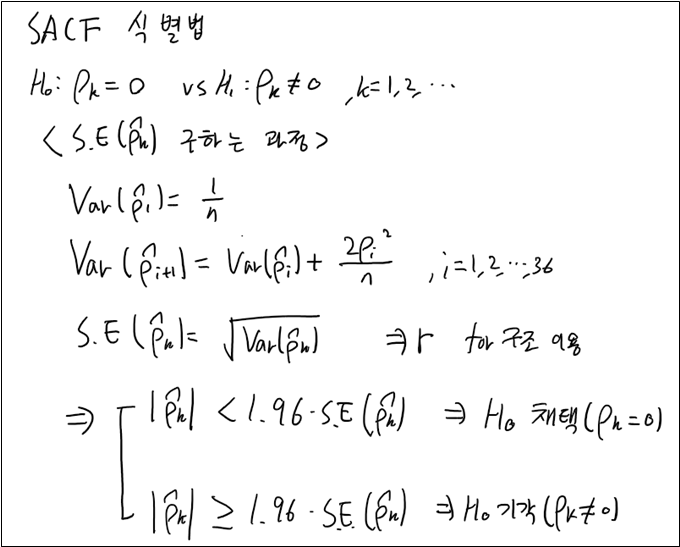 SACF 식별법
H₀: ρₖ = 0 vs H₁: ρₖ ≠ 0 , k=1,2,⋯
< S.E(ρ̂ₖ) 구하는 과정 >
Var(ρ̂₁) = 1/n
Var(ρ̂ᵢ₊₁) = Var(ρ̂ᵢ) + 2ρ̂ᵢ²/n , i=1,2,⋯,36
S.E(ρ̂ₖ) = √Var(ρ̂ₖ) ⇒ r for 구조 이용
⇒ |ρ̂ₖ| < 1.96·S.E(ρ̂ₖ) ⇒ H₀ 채택(ρₖ=0)
|ρ̂ₖ| ≥ 1.96·S.E.(ρ̂ₖ) ⇒ H₀ 기각(ρₖ≠0)